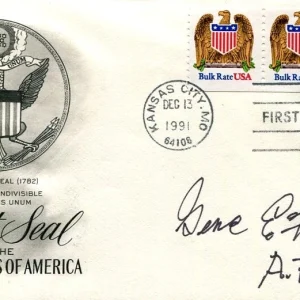 Bulk Rate USA
Bulk Rate USA
KANSAS CITY, MO
DEC 13
1991
64108
FIRST
SEAL (1782)
INDIVISIBLE
S UNUM
t Seal
THE
S OF AMERICA
Gene